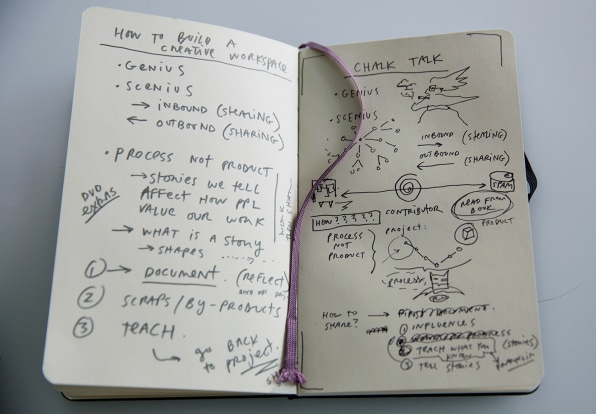 HOW TO BUILD A
CREATIVE WORKSPACE
• GENIUS
• SCENIUS
→ INBOUND (STEALING)
← OUTBOUND (SHARING)
• PROCESS NOT PRODUCT
→ STORIES WE TELL
AFFECT HOW PPL
VALUE OUR WORK
DVD
extras
→ WHAT IS A STORY
→ SHAPES
① → DOCUMENT. (REFLECT
END OF DAY
② SCRAPS/BY-PRODUCTS
③ TEACH.
go BACK
to PROJECT.
CHALK TALK
• GENIUS
• SCENIUS
INBOUND (STEALING)
→
OUTBOUND (SHARING)
←
SPAM
HOW?????
CONTRIBUTOR
READ FROM
BOOK
PRODUCT
PROCESS
NOT
PRODUCT
PROJECT:
PROCESS
HOW TO
SHARE?
→ FIRST/DOCUMENT.
① INFLUENCES
PROGRESS
TEACH WHAT YOU
KNOW
(STORIES)
③ TELL STORIES